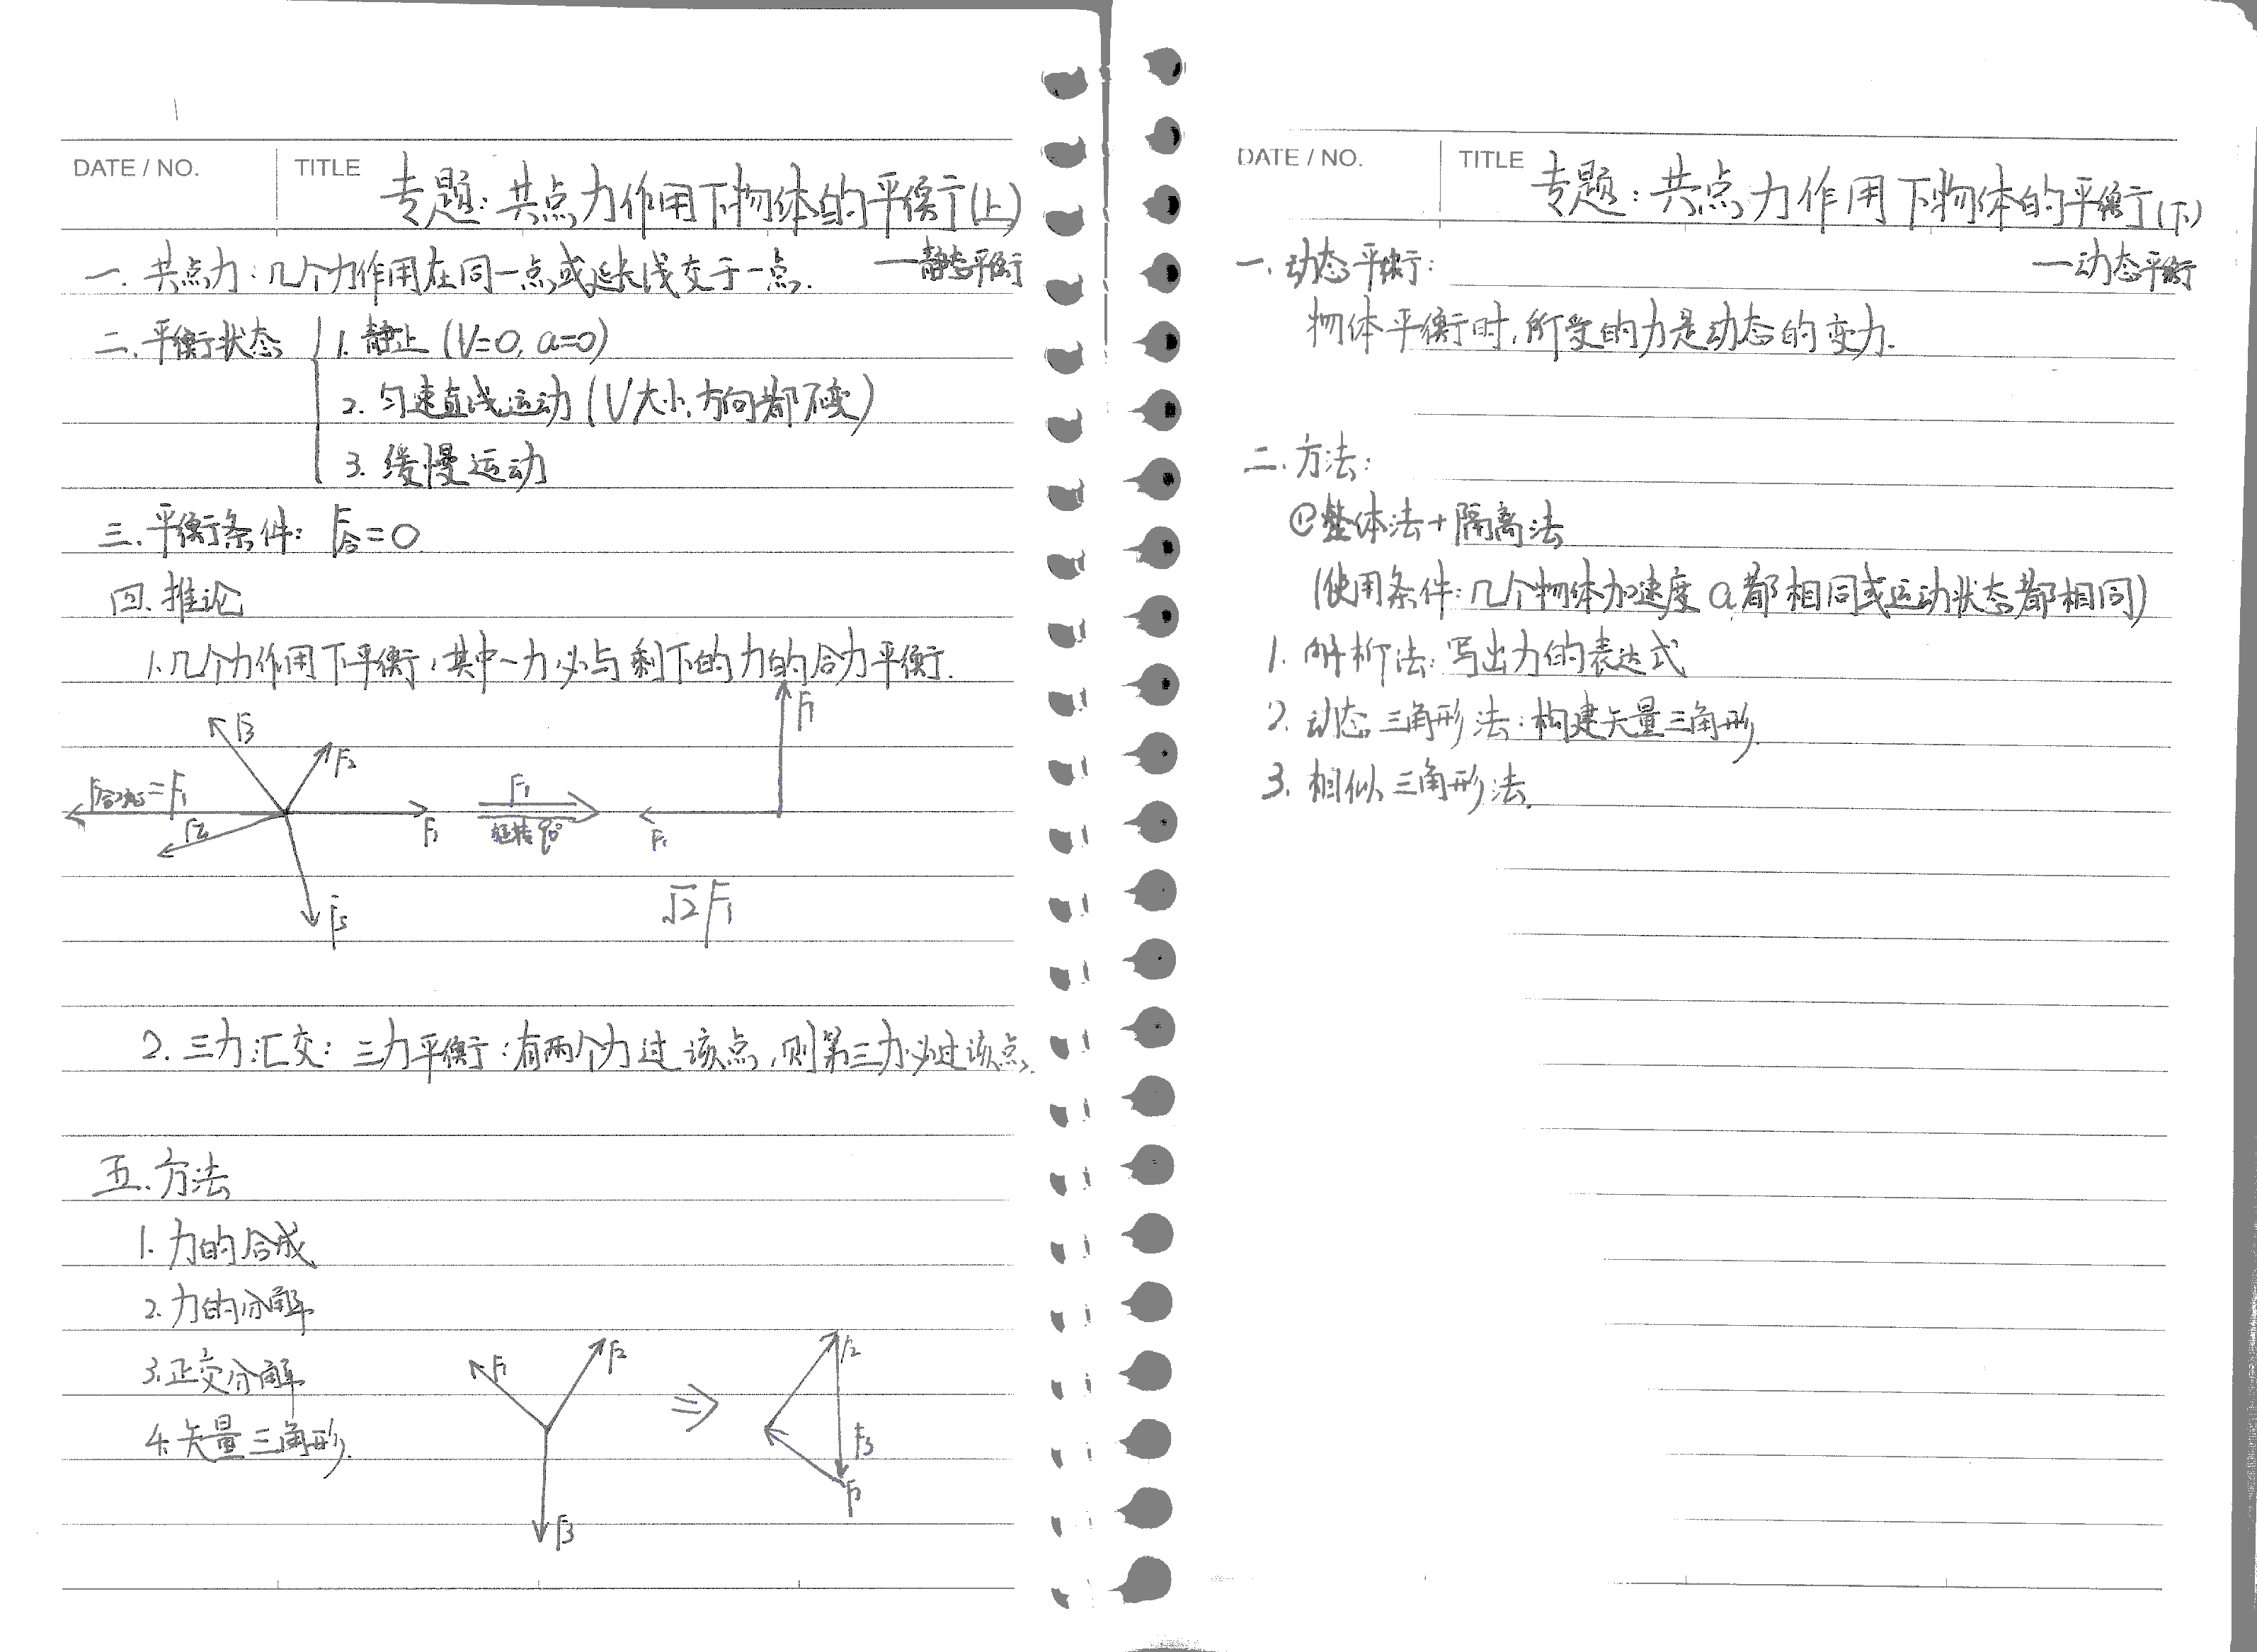 DATE / NO.
TITLE 专题:共点力作用下物体的平衡(上)
一.共点力:几个力作用在同一点或延长线交于一点.
—静态平衡
二.平衡状态
1. 静止 (V=0, a=0)
2. 匀速直线运动 (V大小,方向都不变)
3. 缓慢运动
三.平衡条件: F合=0
四.推论
1.几个力作用下平衡,其中一力必与剩下的力的合力平衡.
F3
F2
=F1
F4
F1
F5
F1
90°
F1
F1
√2 F1
2. 三力汇交: 三力平衡:有两个力过该点,则第三力必过该点.
五.方法
1. 力的合成
2. 力的分解
3.正交分解
4.矢量三角形.
F1
F2
F3
⇒
F2
F3
F1
DATE / NO.
TITLE 专题:共点力作用下物体的平衡(下)
—动态平衡
一.动态平衡:
物体平衡时,所受的力是动态的变力.
二.方法:
整体法+隔离法
(使用条件:几个物体加速度a都相同或运动状态都相同)
1. 解析法:写出力的表达式
2. 动态三角形法:构建矢量三角形.
3. 相似三角形法.